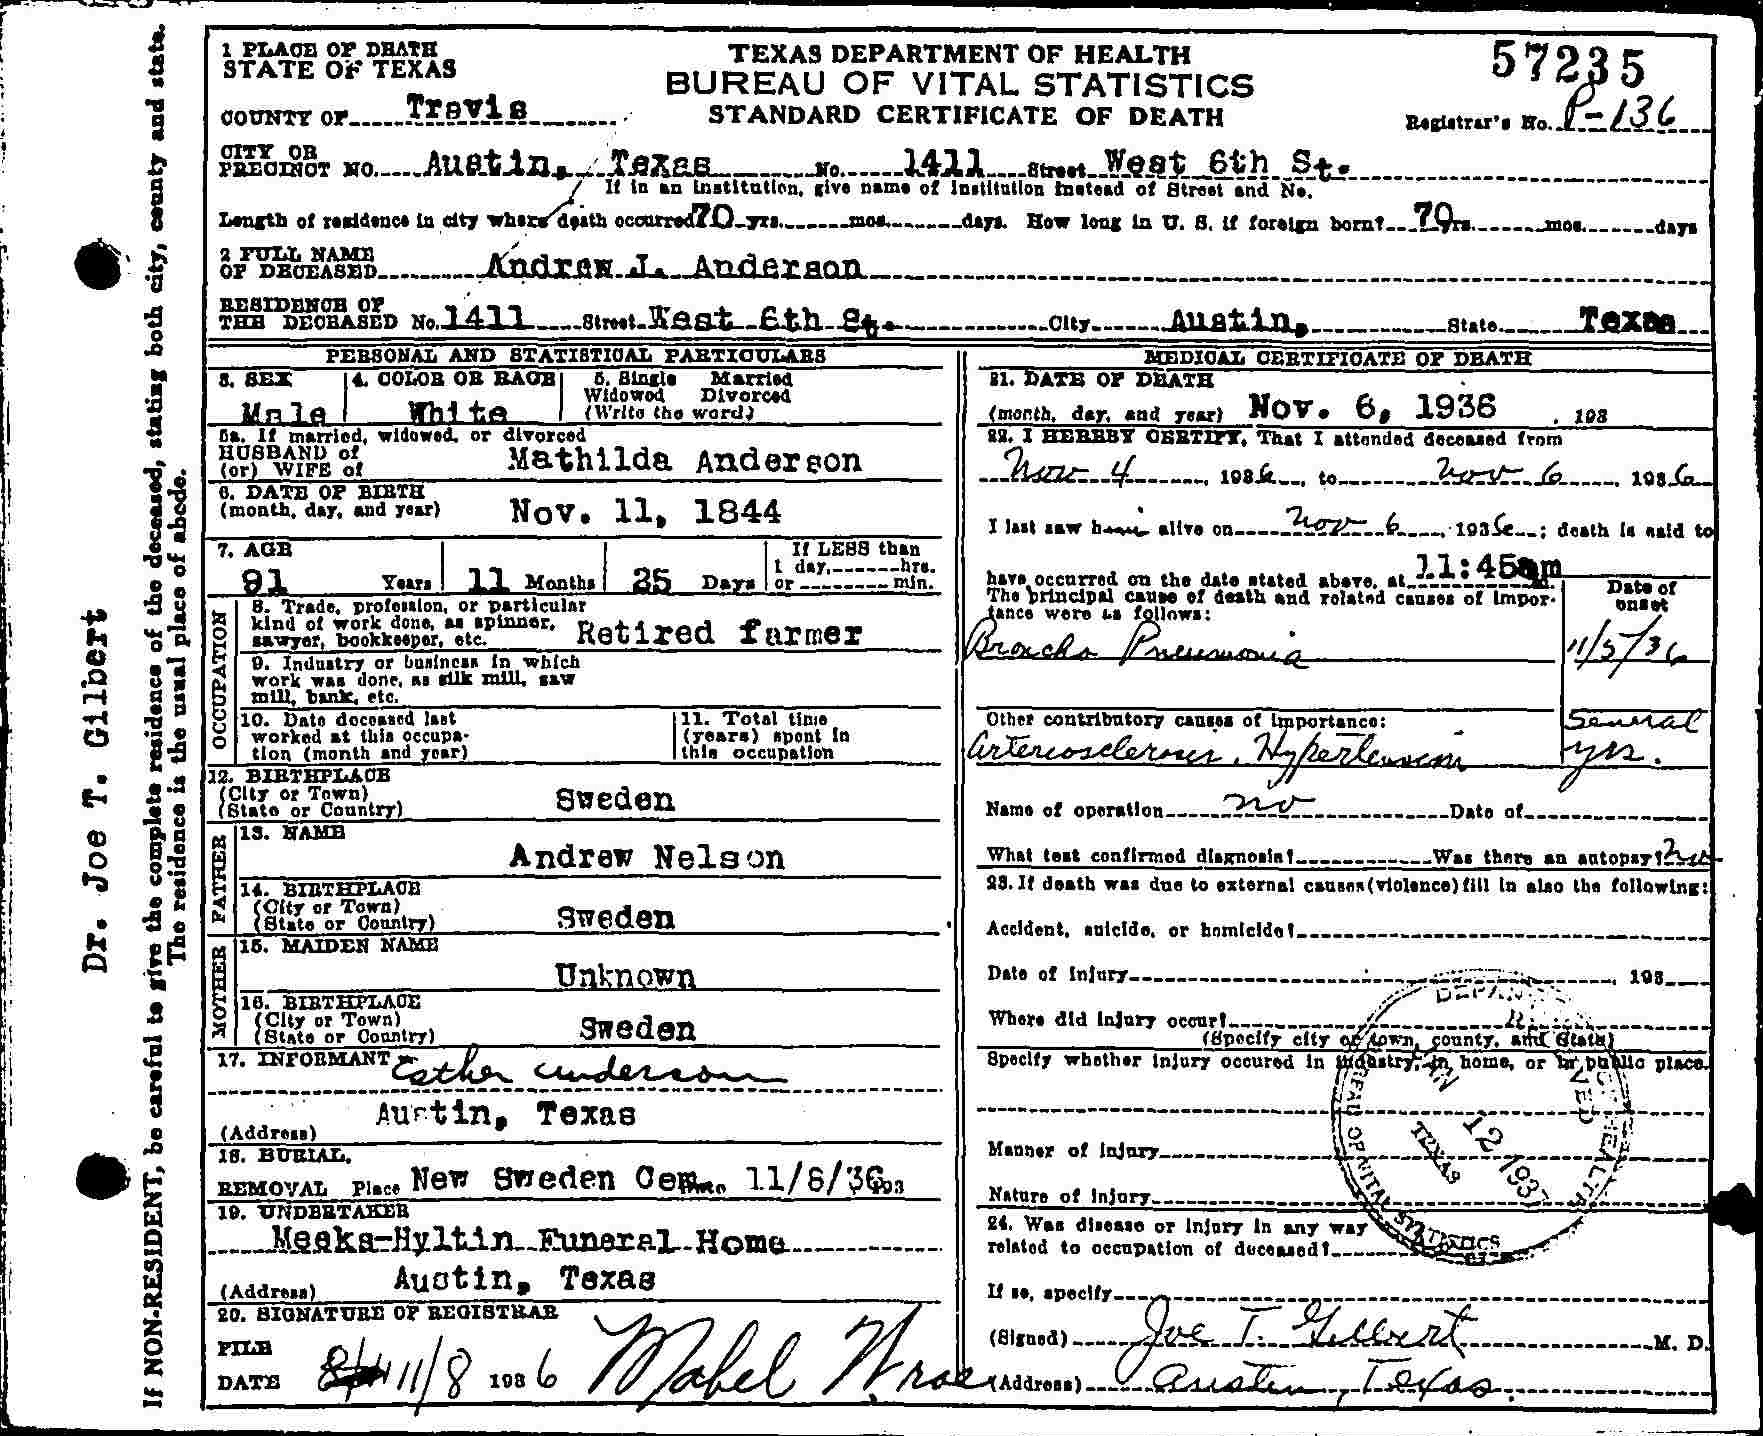 1 PLACE OF DEATH
STATE OF TEXAS
TEXAS DEPARTMENT OF HEALTH
BUREAU OF VITAL STATISTICS
STANDARD CERTIFICATE OF DEATH
57235
COUNTY OF Travis
Registrar's No. P-136
CITY OR
PRECINCT NO. Austin, Texas No. 1411 Street West 6th St.
If in an institution, give name of Institution instead of Street and No.
Length of residence in city where death occurred 70 yrs. mos. days. How long in U. S. if foreign born? 70 yrs. mos. days
2 FULL NAME
OF DECEASED Andrew J. Anderson
RESIDENCE OF
THE DECEASED No. 1411 Street West 6th St. City Austin, State Texas
PERSONAL AND STATISTICAL PARTICULARS
3. SEX
Male
4. COLOR OR RACE
White
5. Single Married
Widowed Divorced
(Write the word)
5a. If married, widowed, or divorced
HUSBAND of
(or) WIFE of Mathilda Anderson
6. DATE OF BIRTH
(month, day, and year) Nov. 11, 1844
7. AGE
91 Years 11 Months 25 Days
If LESS than
1 day, hrs.
or min.
OCCUPATION
8. Trade, profession, or particular
kind of work done, as spinner,
sawyer, bookkeeper, etc. Retired farmer
9. Industry or business in which
work was done, as silk mill, saw
mill, bank, etc.
10. Date deceased last
worked at this occupa-
tion (month and year)
11. Total time
(years) spent in
this occupation
12. BIRTHPLACE
(City or Town)
(State or Country) Sweden
FATHER
13. NAME
Andrew Nelson
14. BIRTHPLACE
(City or Town)
(State or Country) Sweden
MOTHER
15. MAIDEN NAME
Unknown
16. BIRTHPLACE
(City or Town)
(State or Country) Sweden
17. INFORMANT Esther Anderson
Austin, Texas
(Address)
18. BURIAL,
REMOVAL Place New Sweden Cem. 11/8/36 193
19. UNDERTAKER
Meeks-Hyltin Funeral Home
(Address) Austin, Texas
20. SIGNATURE OF REGISTRAR
FILE
DATE 11/8 1936 Mabel
MEDICAL CERTIFICATE OF DEATH
21. DATE OF DEATH
(month, day, and year) Nov. 6, 1936 , 193
22. I HEREBY CERTIFY, That I attended deceased from
Nov 4, 1936, to Nov 6, 1936
I last saw him alive on Nov 6, 1936; death is said to
have occurred on the date stated above, at 11:45am
The principal cause of death and related causes of impor-
tance were as follows:
Date of
onset
Broncho Pneumonia 11/5/36
Other contributory causes of importance:
Arteriosclerosis, Hypertension
Several
yrs.
Name of operation no Date of
What test confirmed diagnosis? Was there an autopsy? no
23. If death was due to external causes (violence) fill in also the following:
Accident, suicide, or homicide?
Date of injury , 193
Where did injury occur?
(Specify city or town, county, and State)
Specify whether injury occured in industry, in home, or in public place.
Manner of injury
Nature of injury
24. Was disease or injury in any way
related to occupation of deceased?
If so, specify
(Signed) Joe T. Gilbert M. D.
(Address) Austin, Texas.
JAN 12 1937
TEXAS
BUREAU OF VITAL STATISTICS
Dr. Joe T. Gilbert
If NON-RESIDENT, be careful to give the complete residence of the deceased, stating both city, county and state.
The residence is the usual place of abode.